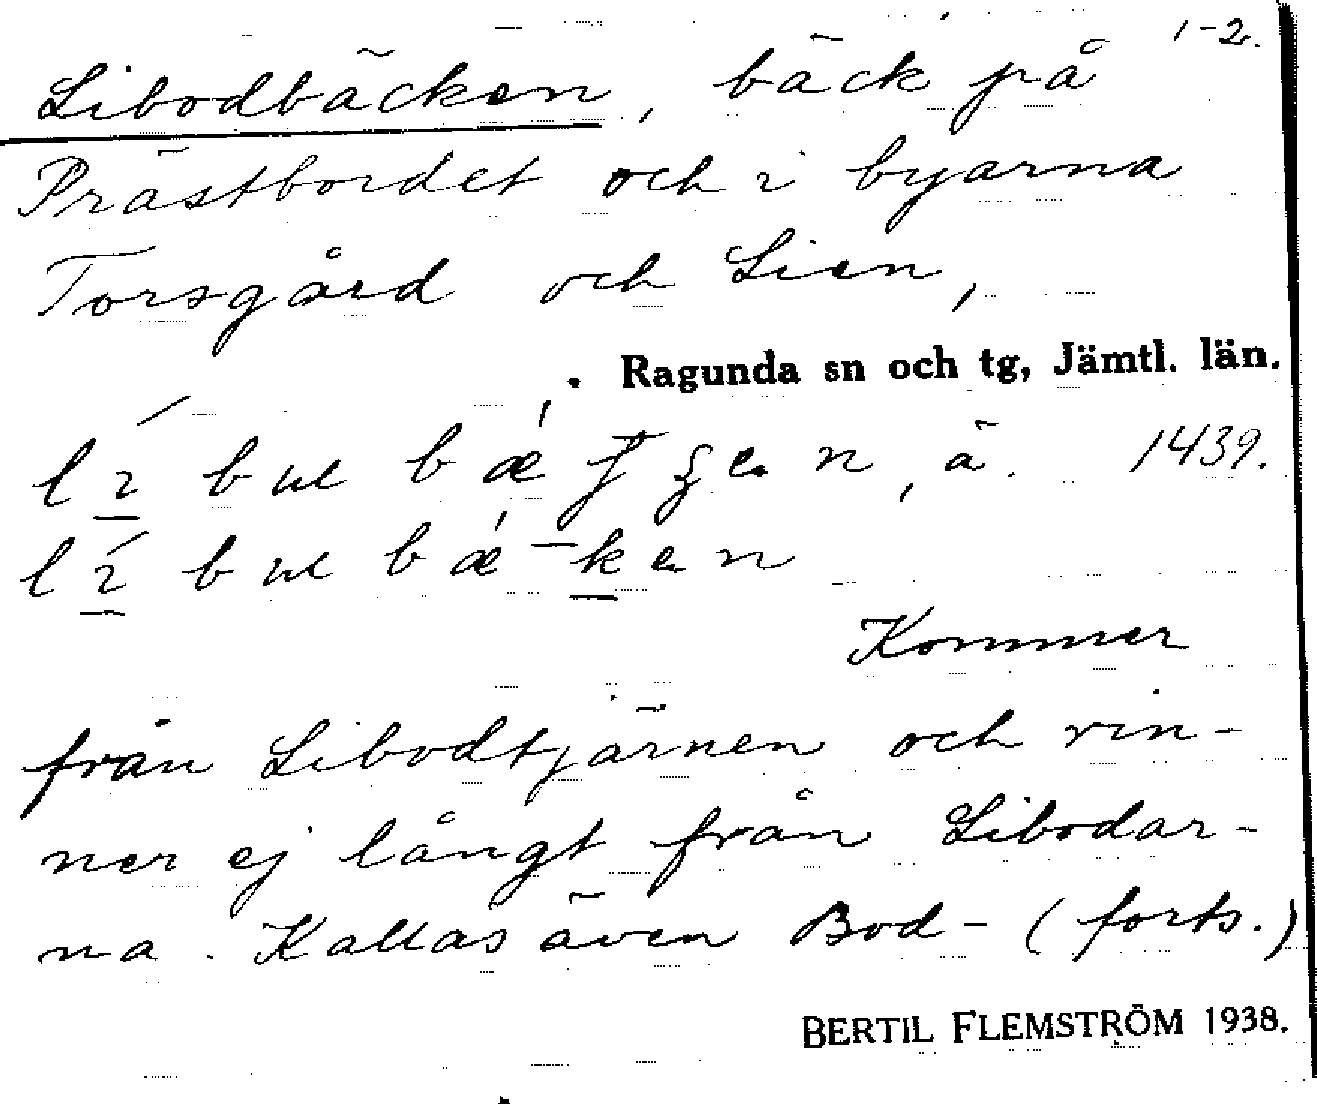 1-2.
Libodbäcken, bäck på
Prästbordet och i byarna
Torsgård och Lien,
. Ragunda sn och tg, Jämtl. län.
ä. 1439.
Kommer
från Libodtjärnen och rin-
ner ej långt från Libodar-
na. Kallas även Bod- (forts.)
BERTIL FLEMSTRÖM 1938.